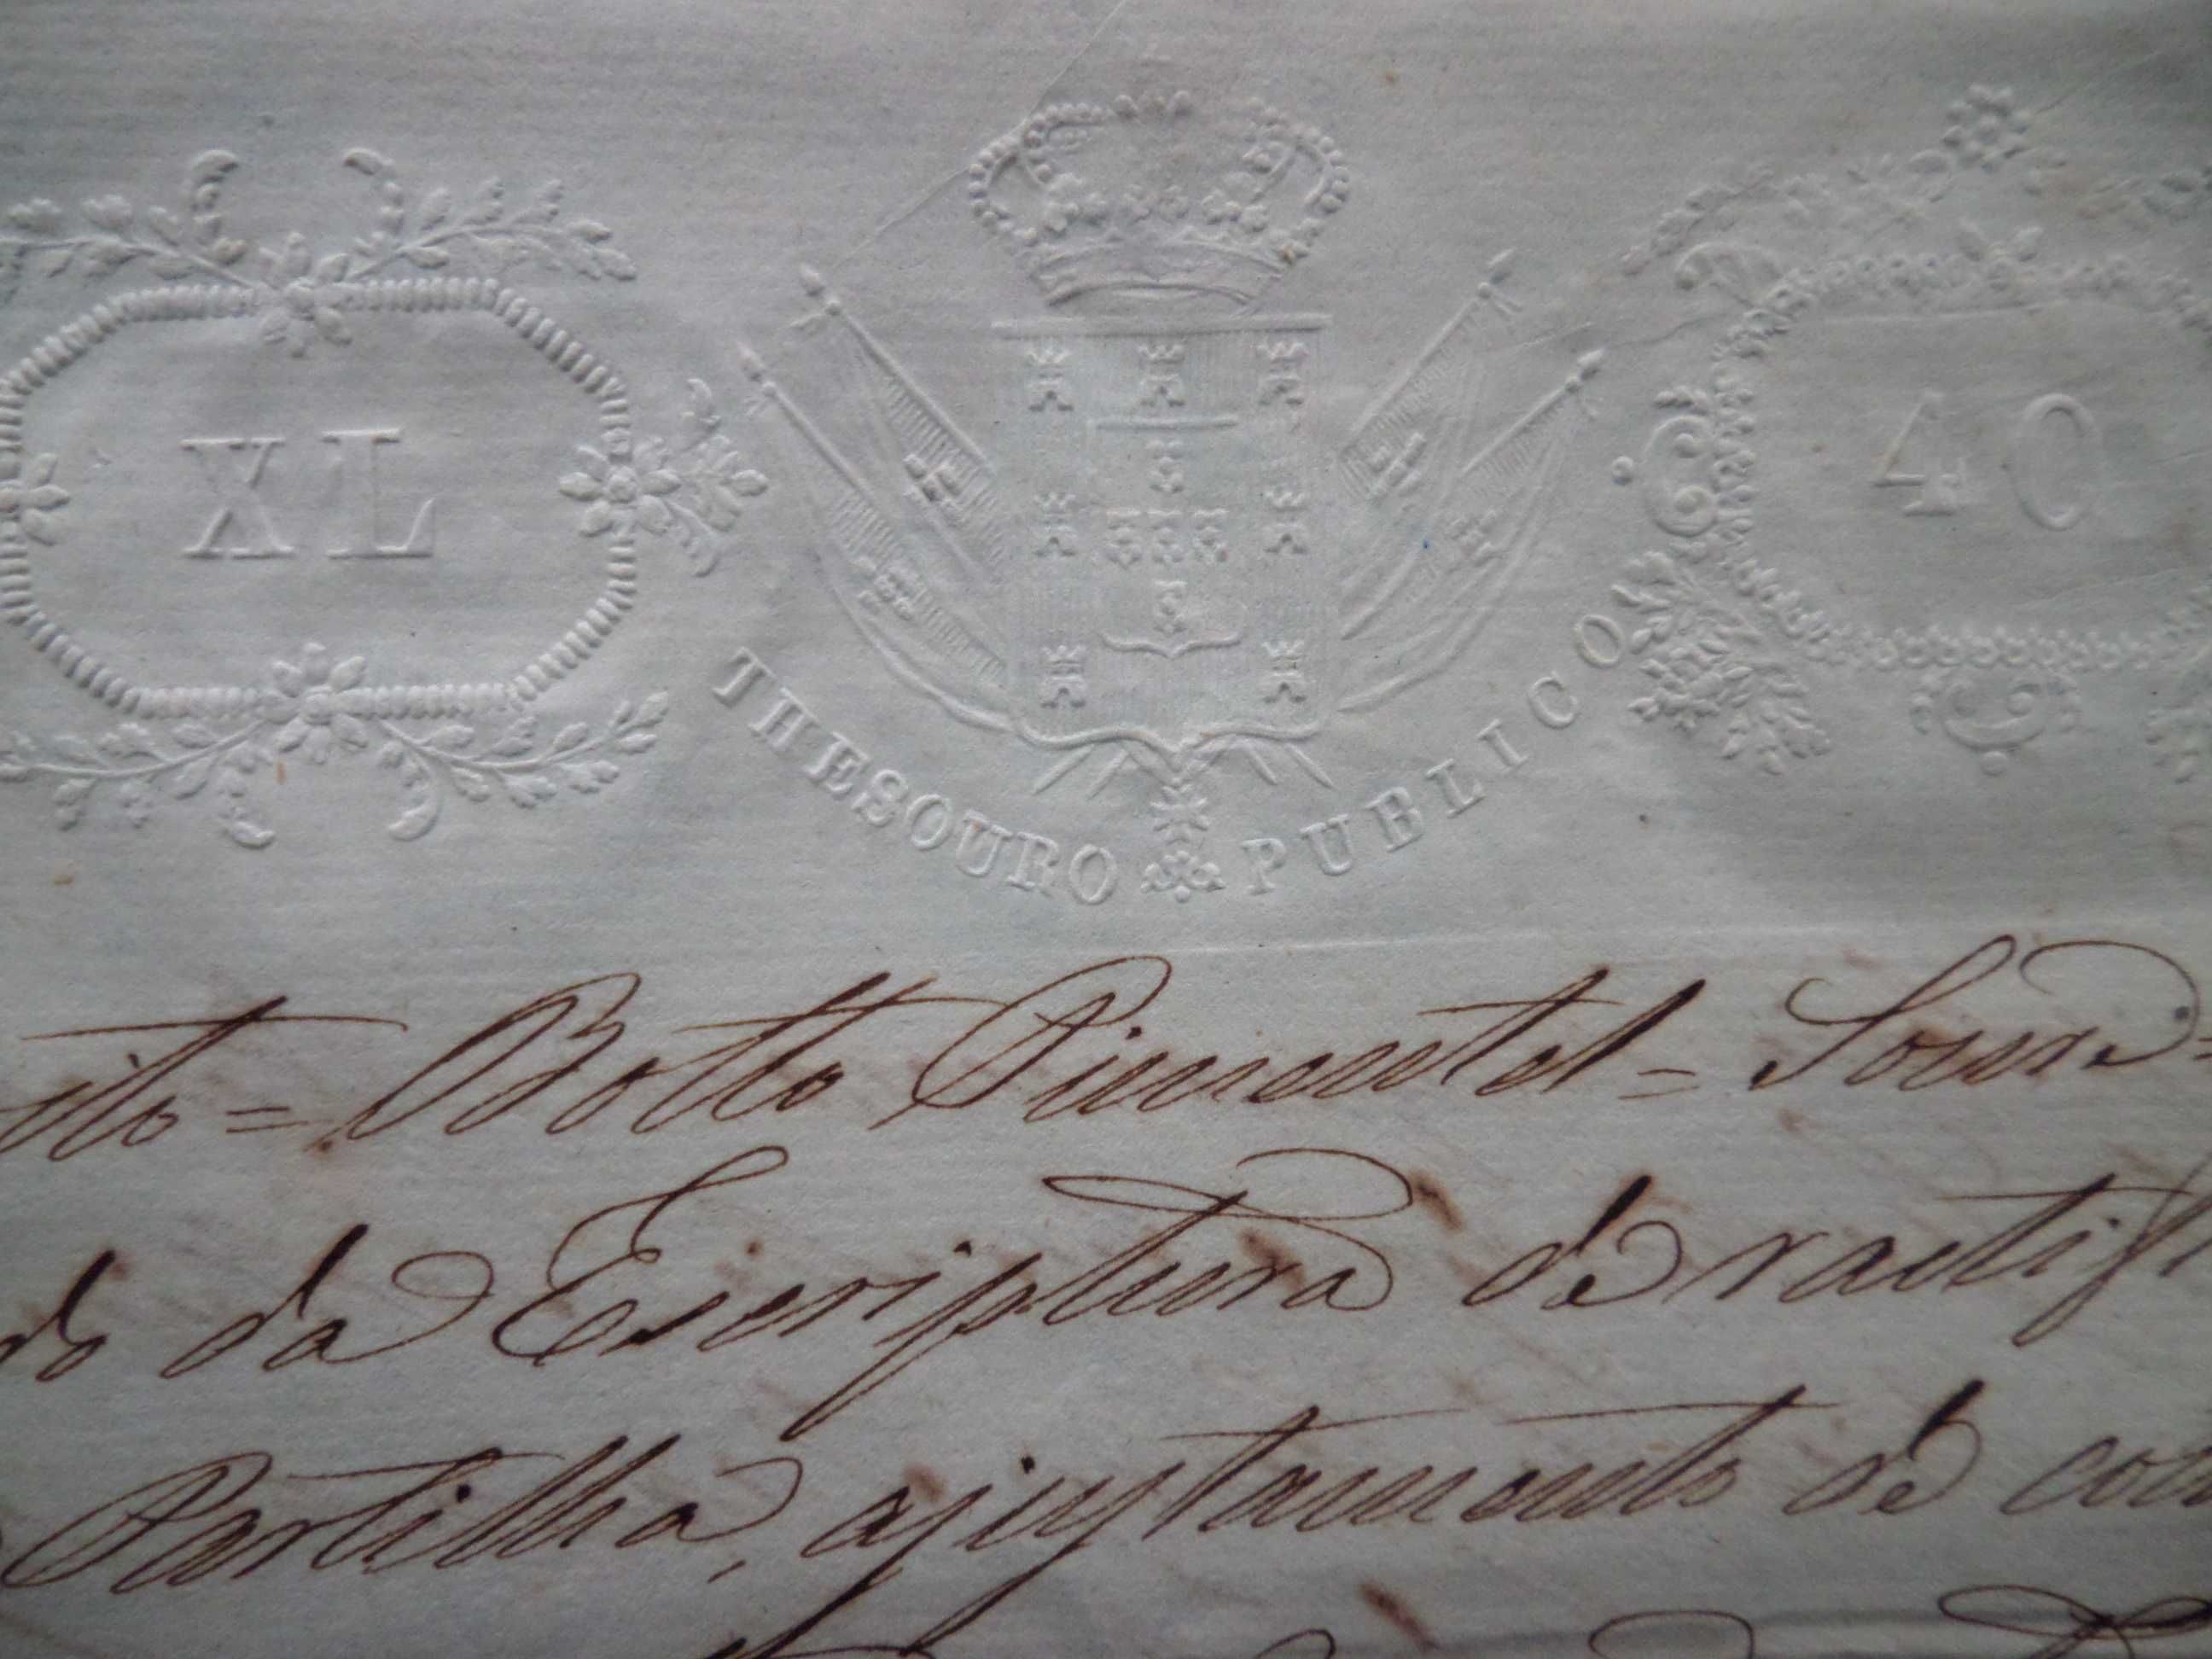 XL
THESOURO PUBLICO
40
ito = Botto Pimentel = Souza =
do da Escriptura de ractifi
Partilha, ajustamento de con